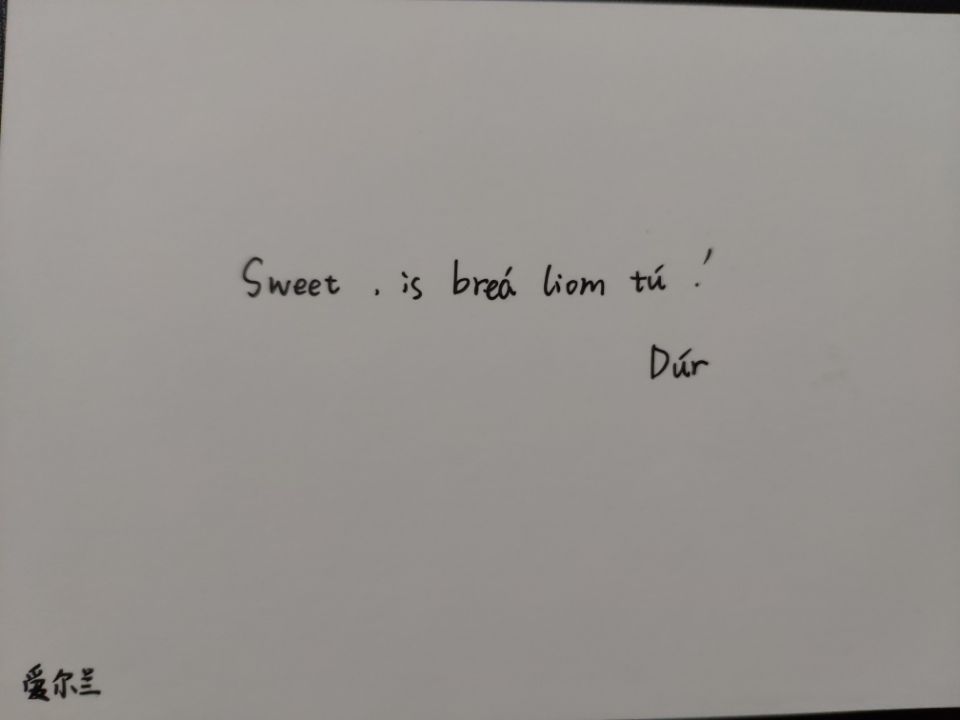 Sweet, is breá liom tú!
Dúr
爱尔兰